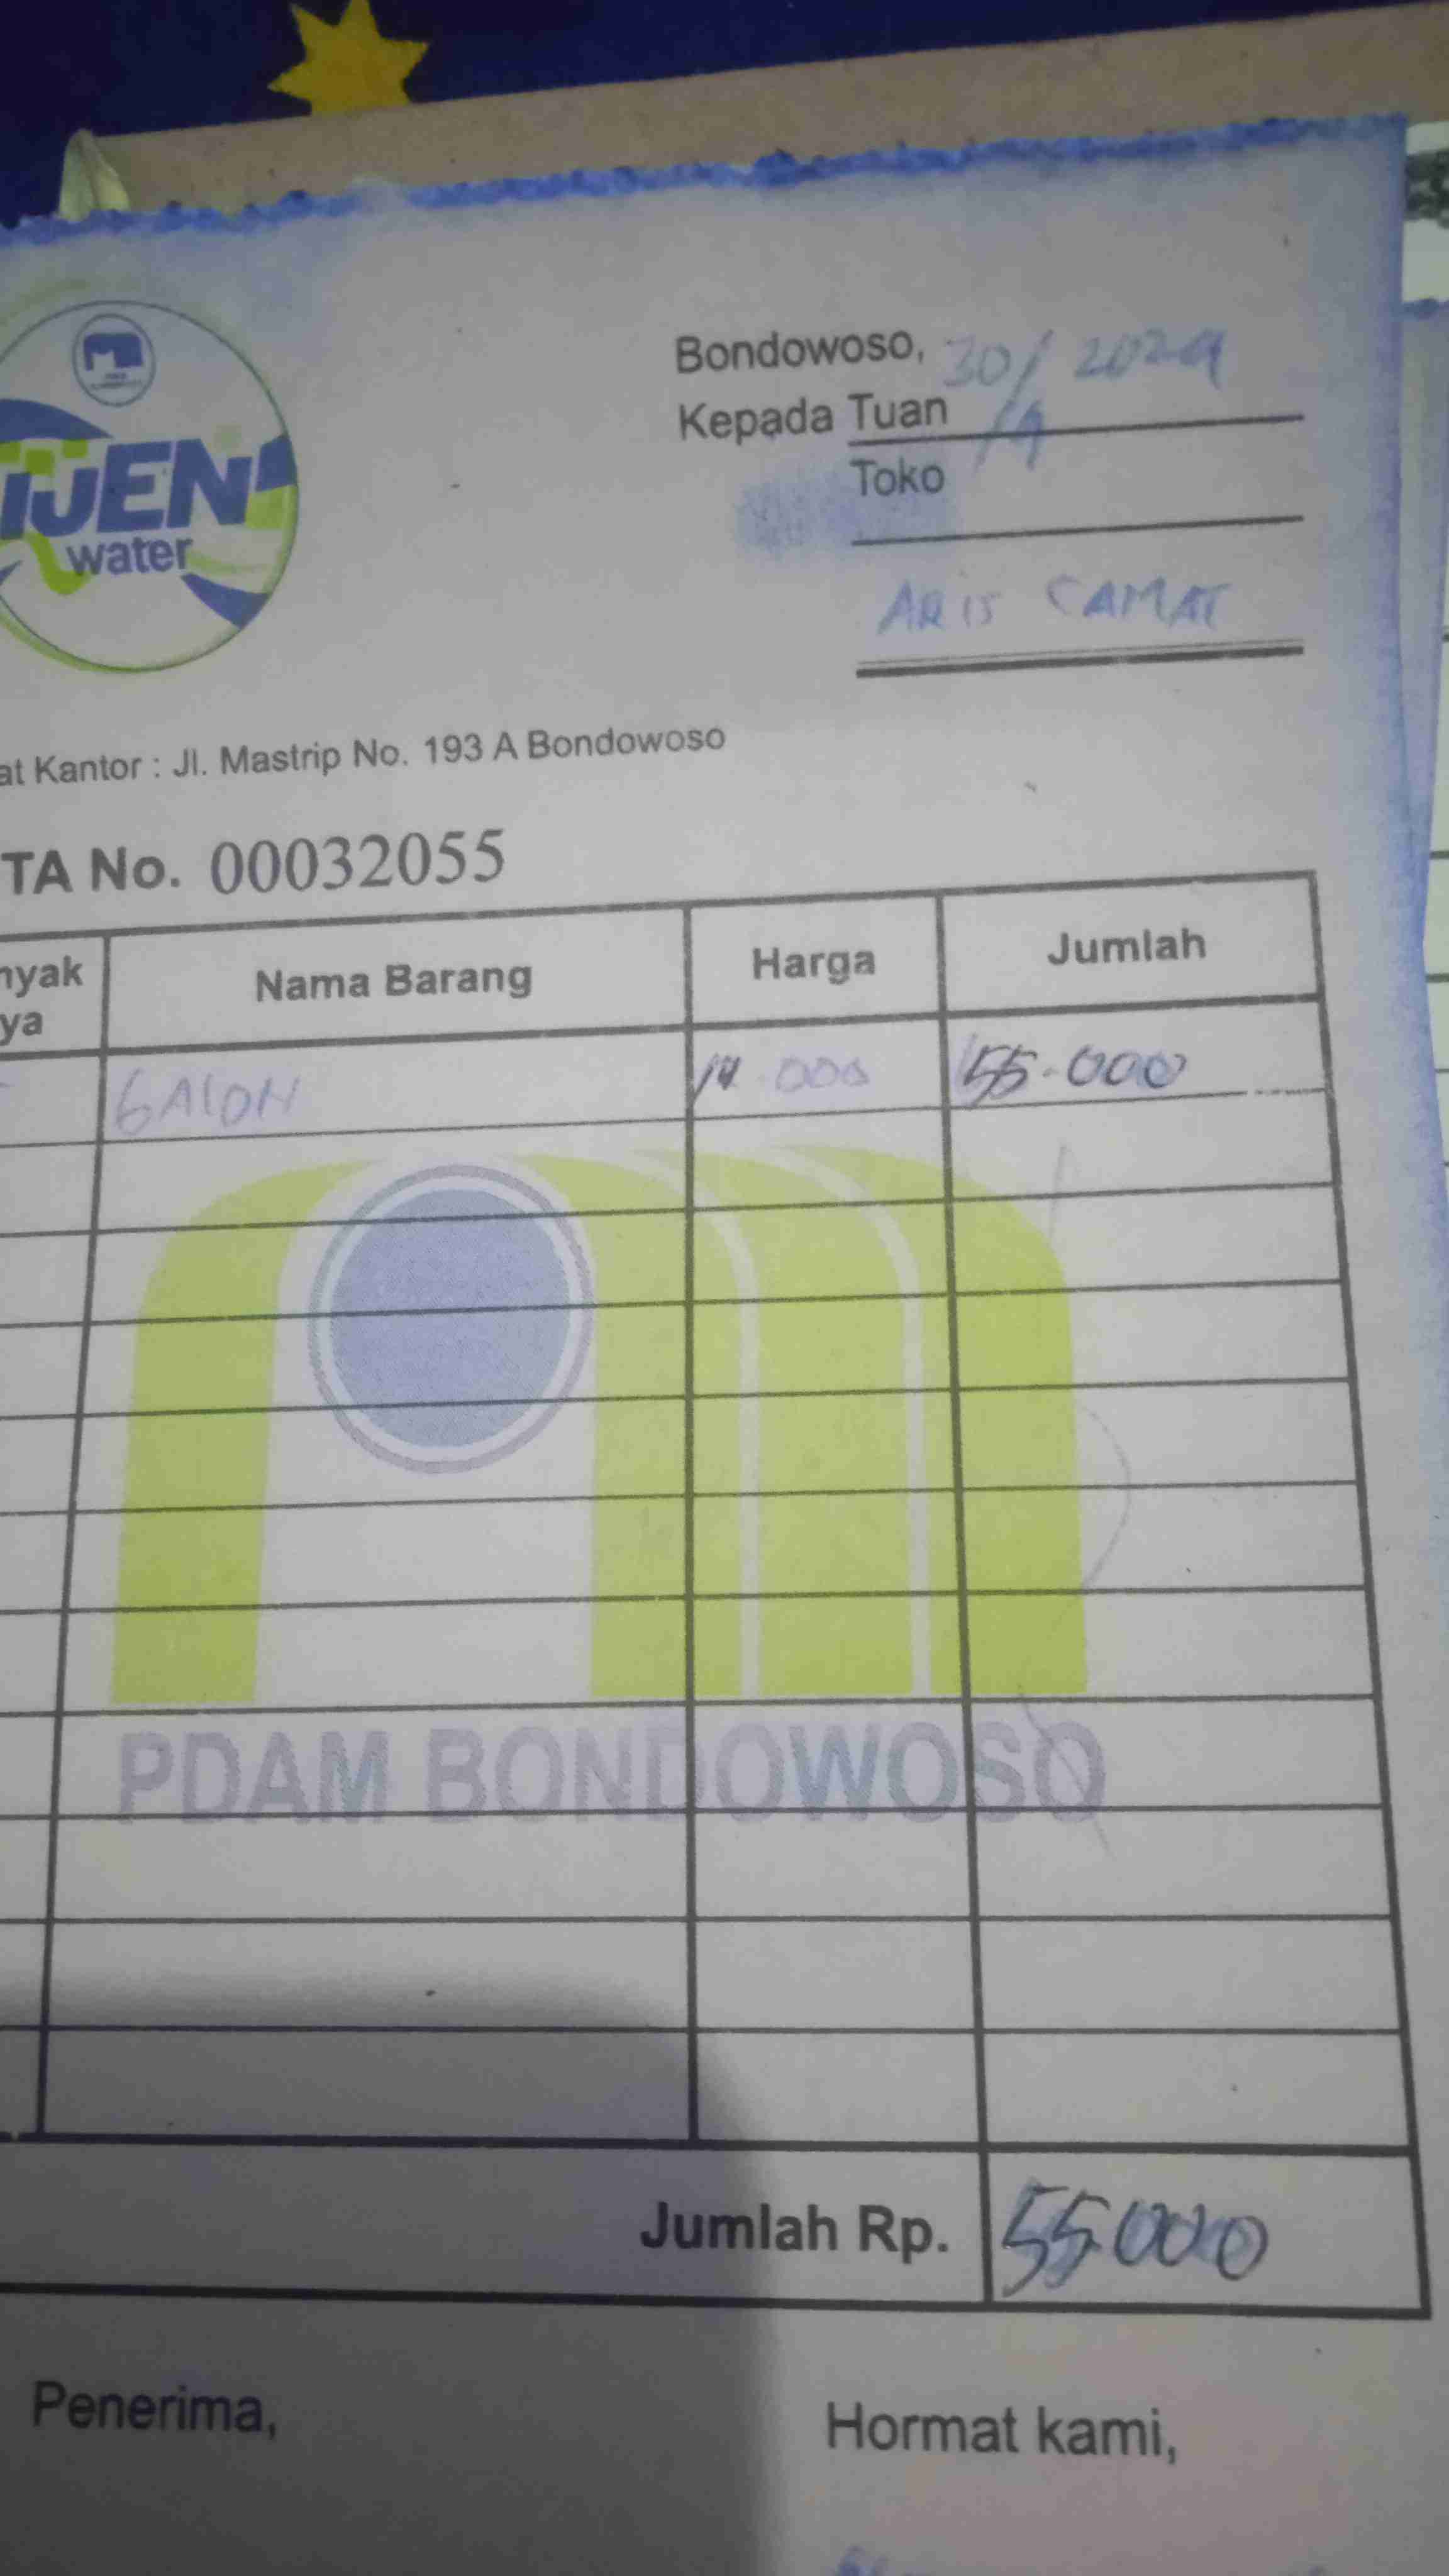 IJEN
water
Bondowoso, 30/9 2024
Kepada Tuan
Toko
ARIS CAMAT
at Kantor : Jl. Mastrip No. 193 A Bondowoso
TA No. 00032055
nyak
ya
Nama Barang
Harga
Jumlah
GALON
.000
55.000
PDAM BONDOWOSO
Jumlah Rp.
55.000
Penerima,
Hormat kami,